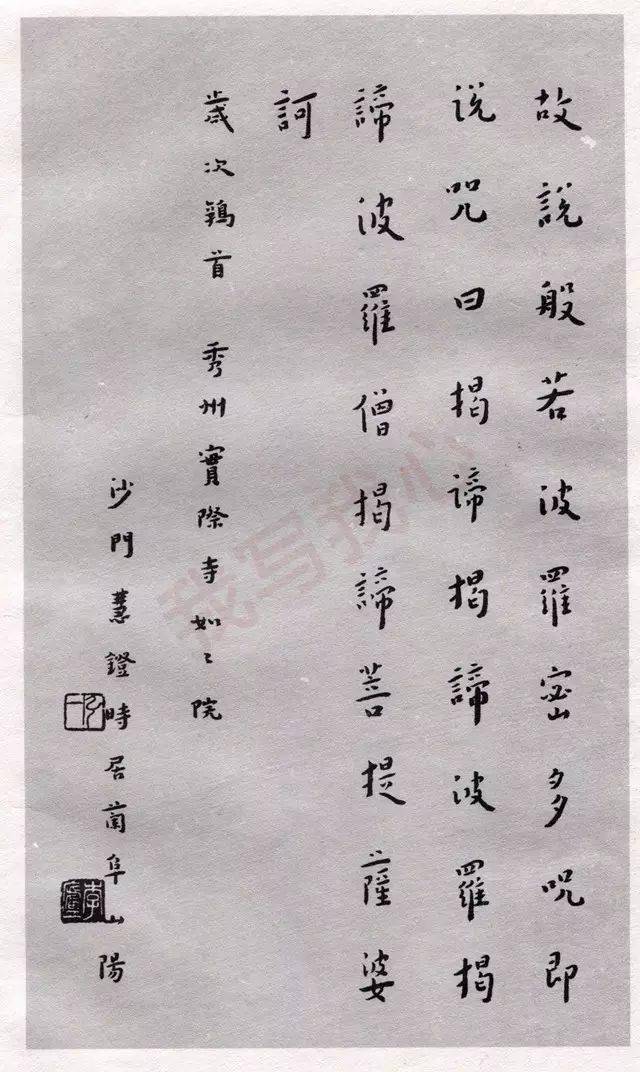 故說般若波羅密多呪即
說咒曰揭諦揭諦波羅揭
諦波羅僧揭諦菩提薩婆
訶
歲次鶉首 秀州實際寺如〻院
沙門慧鐙時居蘭阜山陽
弘一
李廬
我写我心